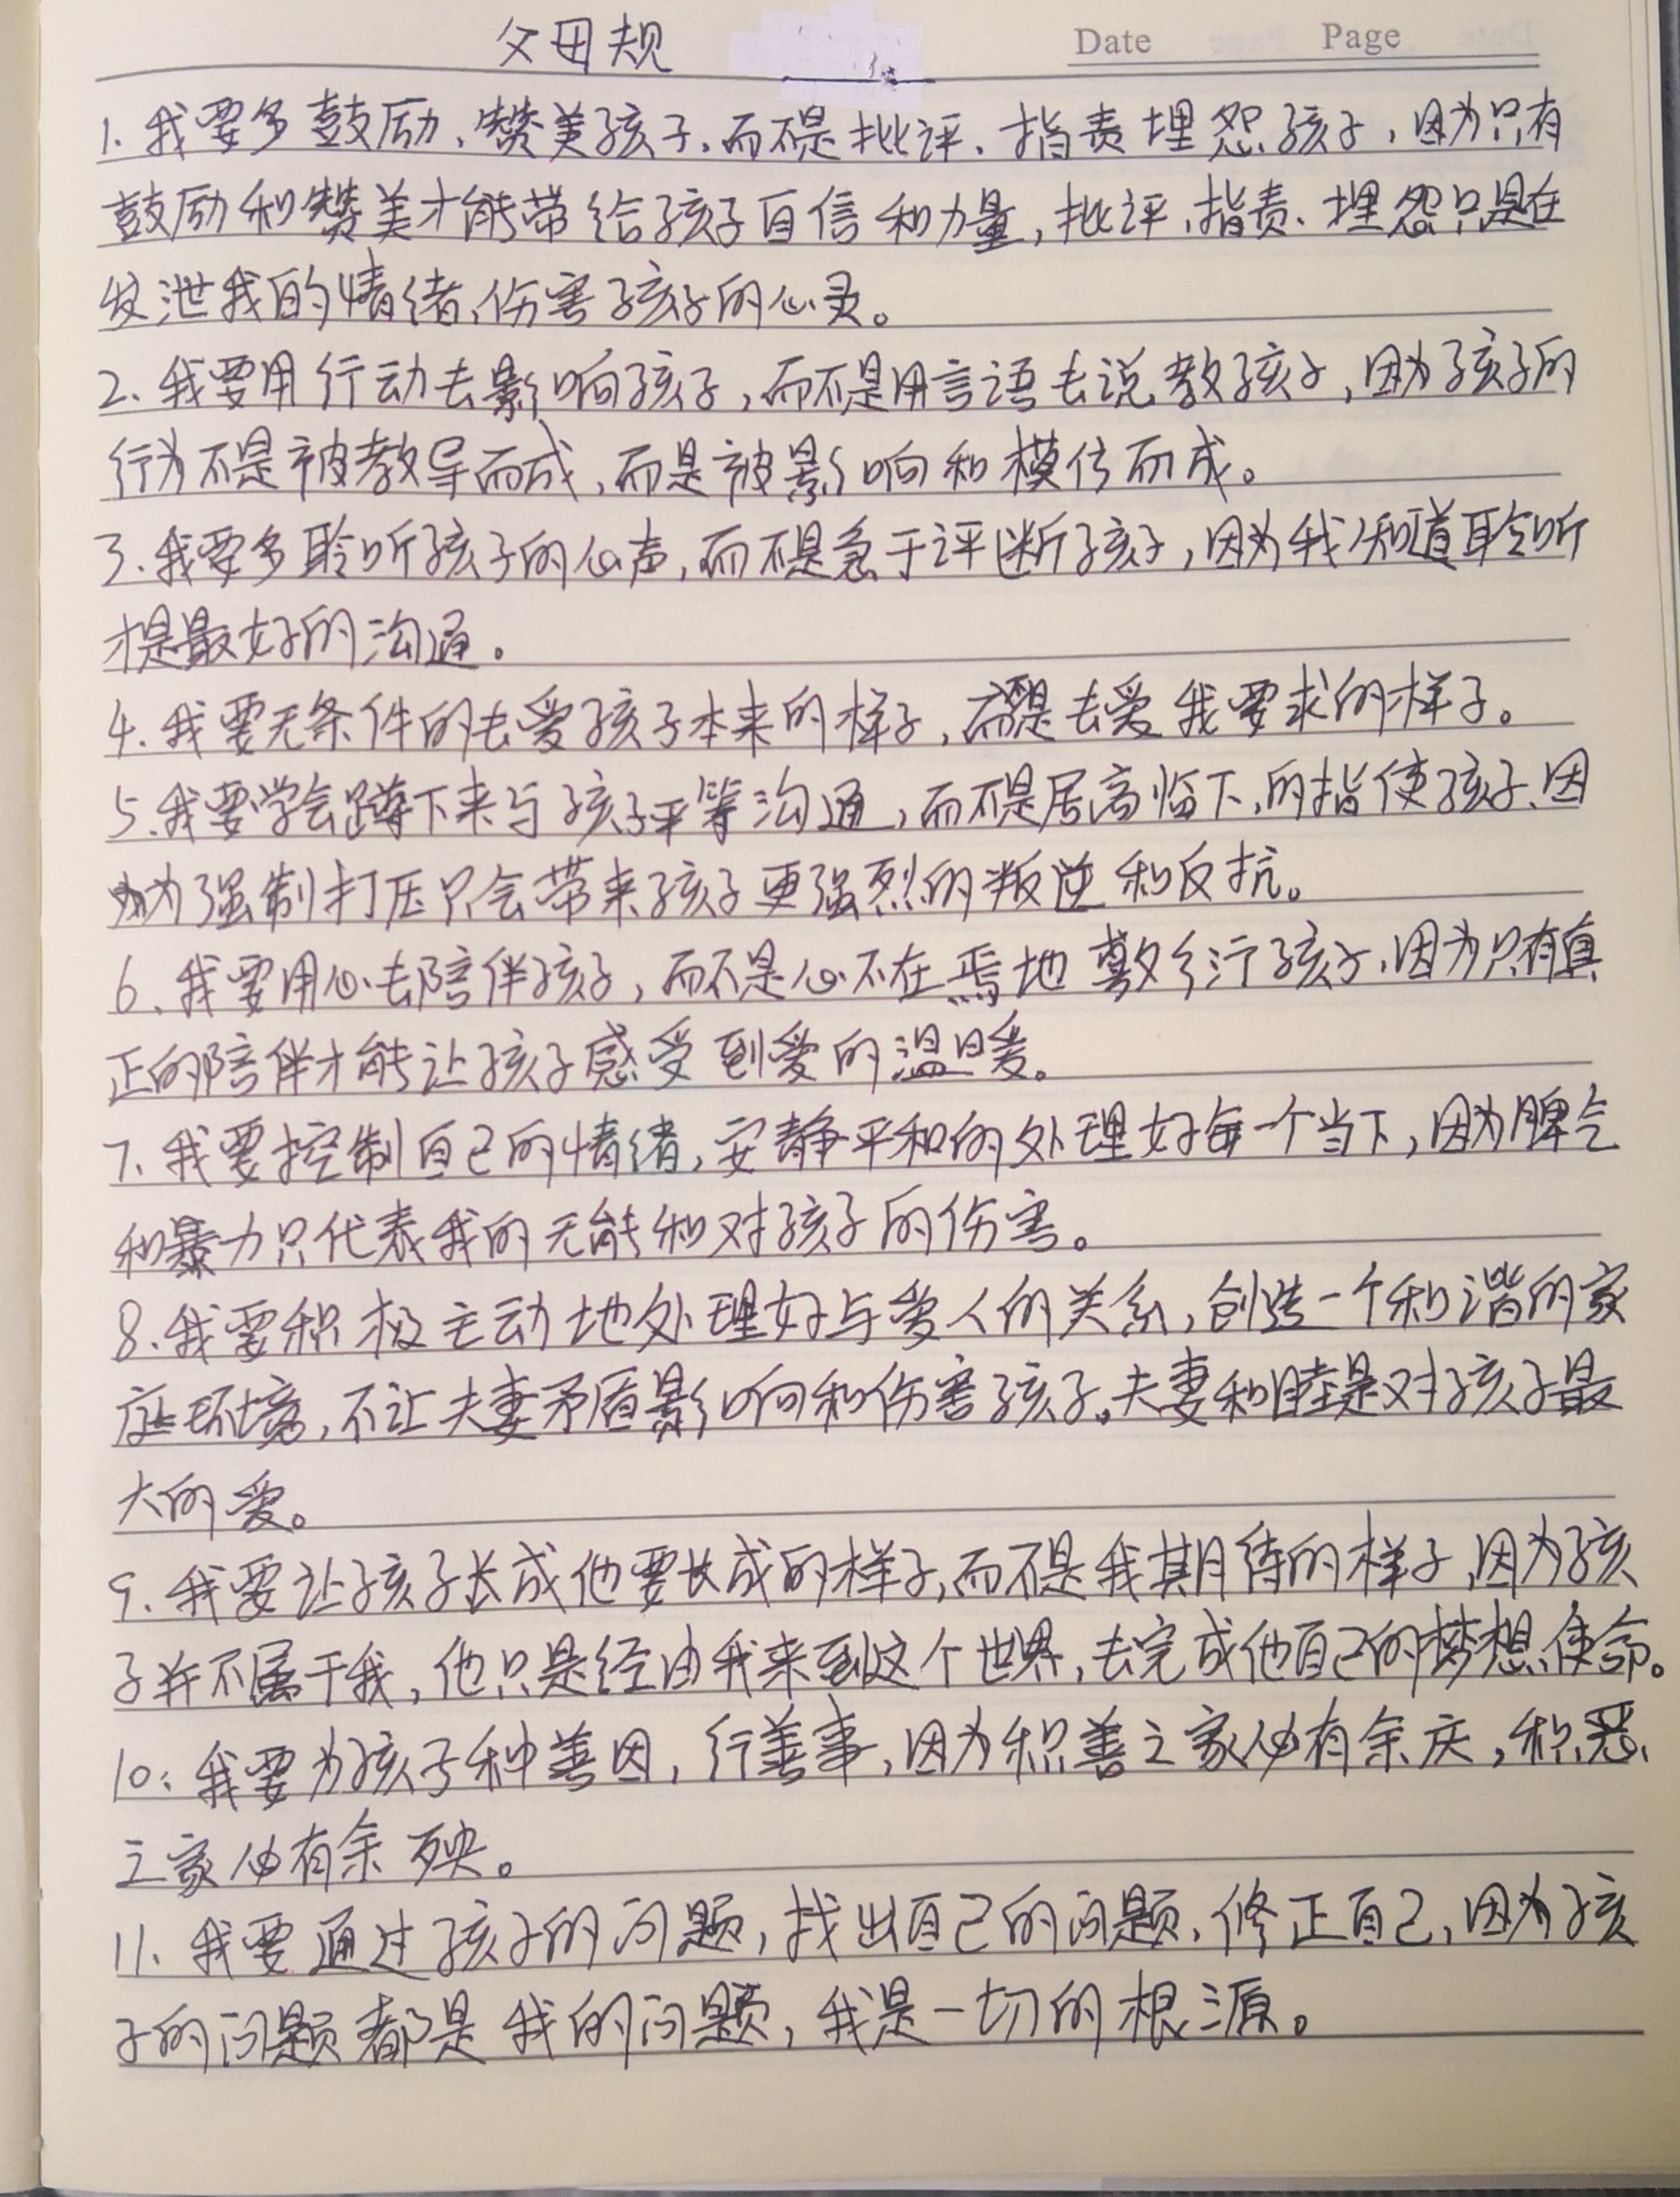 父母规
Date Page
1. 我要多鼓励、赞美孩子,而不是批评、指责埋怨孩子,因为只有
鼓励和赞美才能带给孩子自信和力量,批评、指责、埋怨只是在
发泄我的情绪,伤害孩子的心灵。
2. 我要用行动去影响孩子,而不是用言语去说教孩子,因为孩子的
行为不是被教导而成,而是被影响和模仿而成。
3. 我要多聆听孩子的心声,而不是急于评断孩子,因为我知道聆听
才是最好的沟通。
4. 我要无条件的去爱孩子本来的样子,而不是去爱我要求的样子。
5. 我要学会蹲下来与孩子平等沟通,而不是居高临下的指使孩子,因
为强制打压只会带来孩子更强烈的叛逆和反抗。
6. 我要用心去陪伴孩子,而不是心不在焉地敷衍孩子,因为只有真
正的陪伴才能让孩子感受到爱的温暖。
7. 我要控制自己的情绪,安静平和的处理好每一个当下,因为脾气
和暴力只代表我的无能和对孩子的伤害。
8. 我要积极主动地处理好与爱人的关系,创造一个和谐的家
庭环境,不让夫妻矛盾影响和伤害孩子。夫妻和睦是对孩子最
大的爱。
9. 我要让孩子长成他要长成的样子,而不是我期待的样子,因为孩
子并不属于我,他只是经由我来到这个世界,去完成他自己的梦想、使命。
10: 我要为孩子种善因,行善事,因为积善之家必有余庆,积恶
之家必有余殃。
11. 我要通过孩子的问题,找出自己的问题,修正自己,因为孩
子的问题都是我的问题,我是一切的根源。